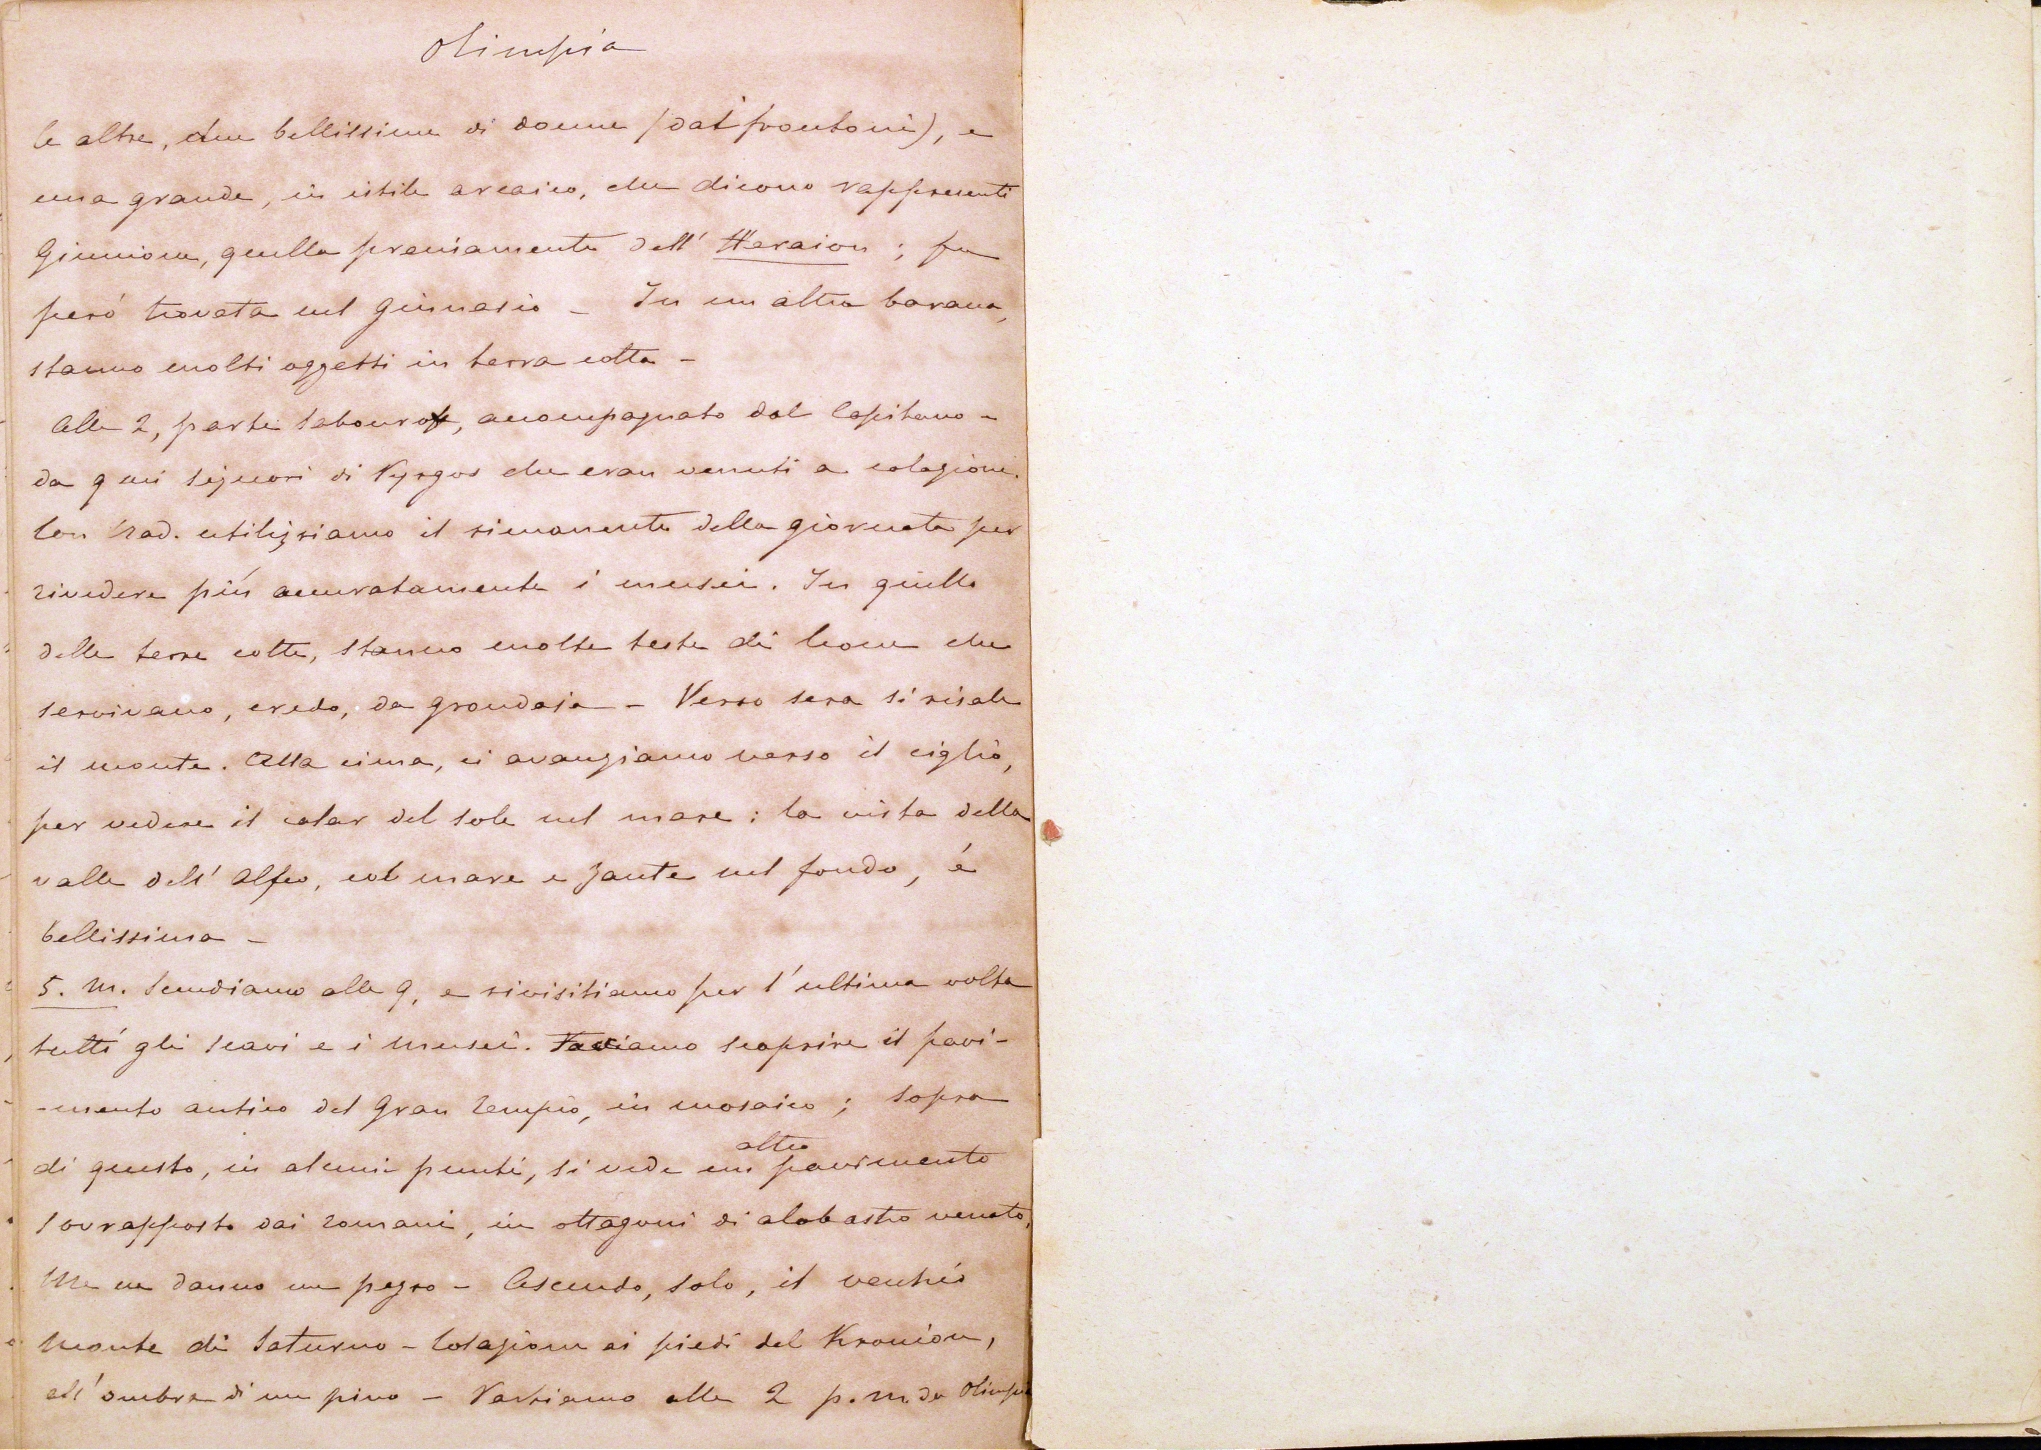 Olimpia
le altre, due bellissime di donne (dai frontoni), e
una grande, in istile arcaico, che dicono rappresenti
Giunione, quella precisamente dell' Heraion ; fu
però trovata nel Ginnasio – In un altra baracca,
stanno molti oggetti in terra cotta –
Alle 2, parte Sabouroff, accompagnato dal Capitano –
da quei signori di Pyrgos che eran venuti a colazione.
Con Nad. utilizziamo il rimanente della giornata per
rivedere più accuratamente i musei. In quello
delle terre cotte, stanno molte teste di leone che
servivano, credo, da grondaia – Verso sera si risale
il monte. Alla cima, ci avanziamo verso il ciglio,
per vedere il calar del sole nel mare : la vista della
valle dell' Alfeo, col mare e Zante nel fondo, è
bellissima –
5. M. Scendiamo alle 9, e rivisitiamo per l'ultima volta
tutti gli scavi e i musei. Facciamo scoprire il pavi-
-mento antico del Gran Tempio, in mosaico ; sopra
di questo, in alcuni punti, si vede un altro pavimento
sovrapposto dai romani, in ottagoni di alabastro venato,
Me ne danno un pezzo – Ascendo, solo, il vecchio
Monte di Saturno – Colazione ai piedi del Kronion,
all'ombra di un pino – Partiamo alle 2 p.m. da Olimpia